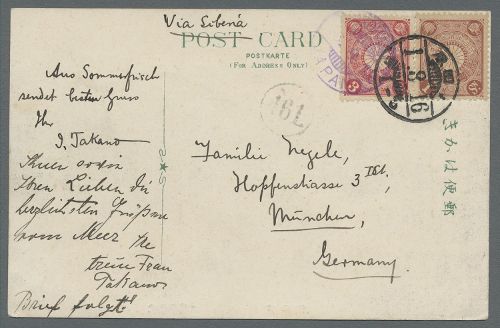 Via Sibená
POST CARD
POSTKARTE
(FOR ADDRESS ONLY)
Aus Sommerfrisch
sendet besten Gruss
Ihr
I. Takano
Ihnen sowie
Ihren Lieben die
herzlichsten Grüsse
vom Meer Ihre
treue Frau
Takano
Brief folgt!
161
Familie Negele,
Hopfenstrasse 3
München,
Germany.
きかは便郵